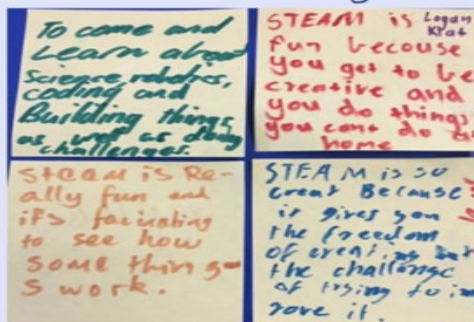 To come and
Learn about
Science, robotics,
coding and
Building things,
as well as doing
challenges.
STEAM is
Logan
fun because
you get to be
creative and
you do things
you cant do a
home
STEAM is Re-
ally fun and
it's facinating
to see how
some thing
s work.
STEAM is so
great Because
it gives you
the freedom
of creating but
the challenge
of trying to im
rove it.